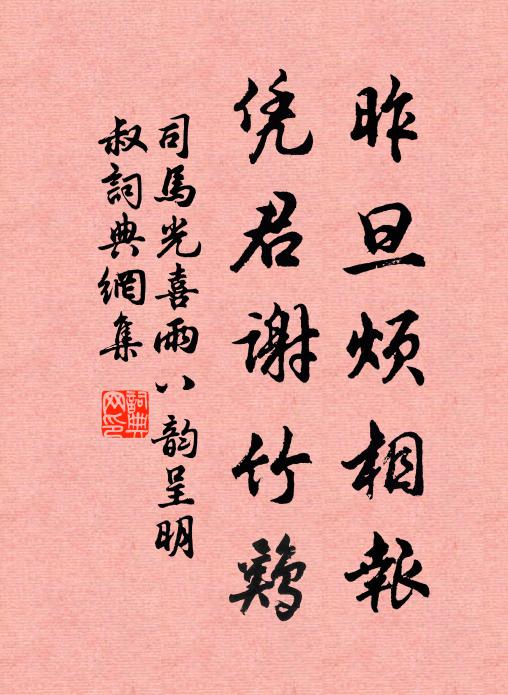 昨旦烦相報
凭君謝竹鷄
司馬光喜雨八韵呈明
叔詞典網集
詞典
网印